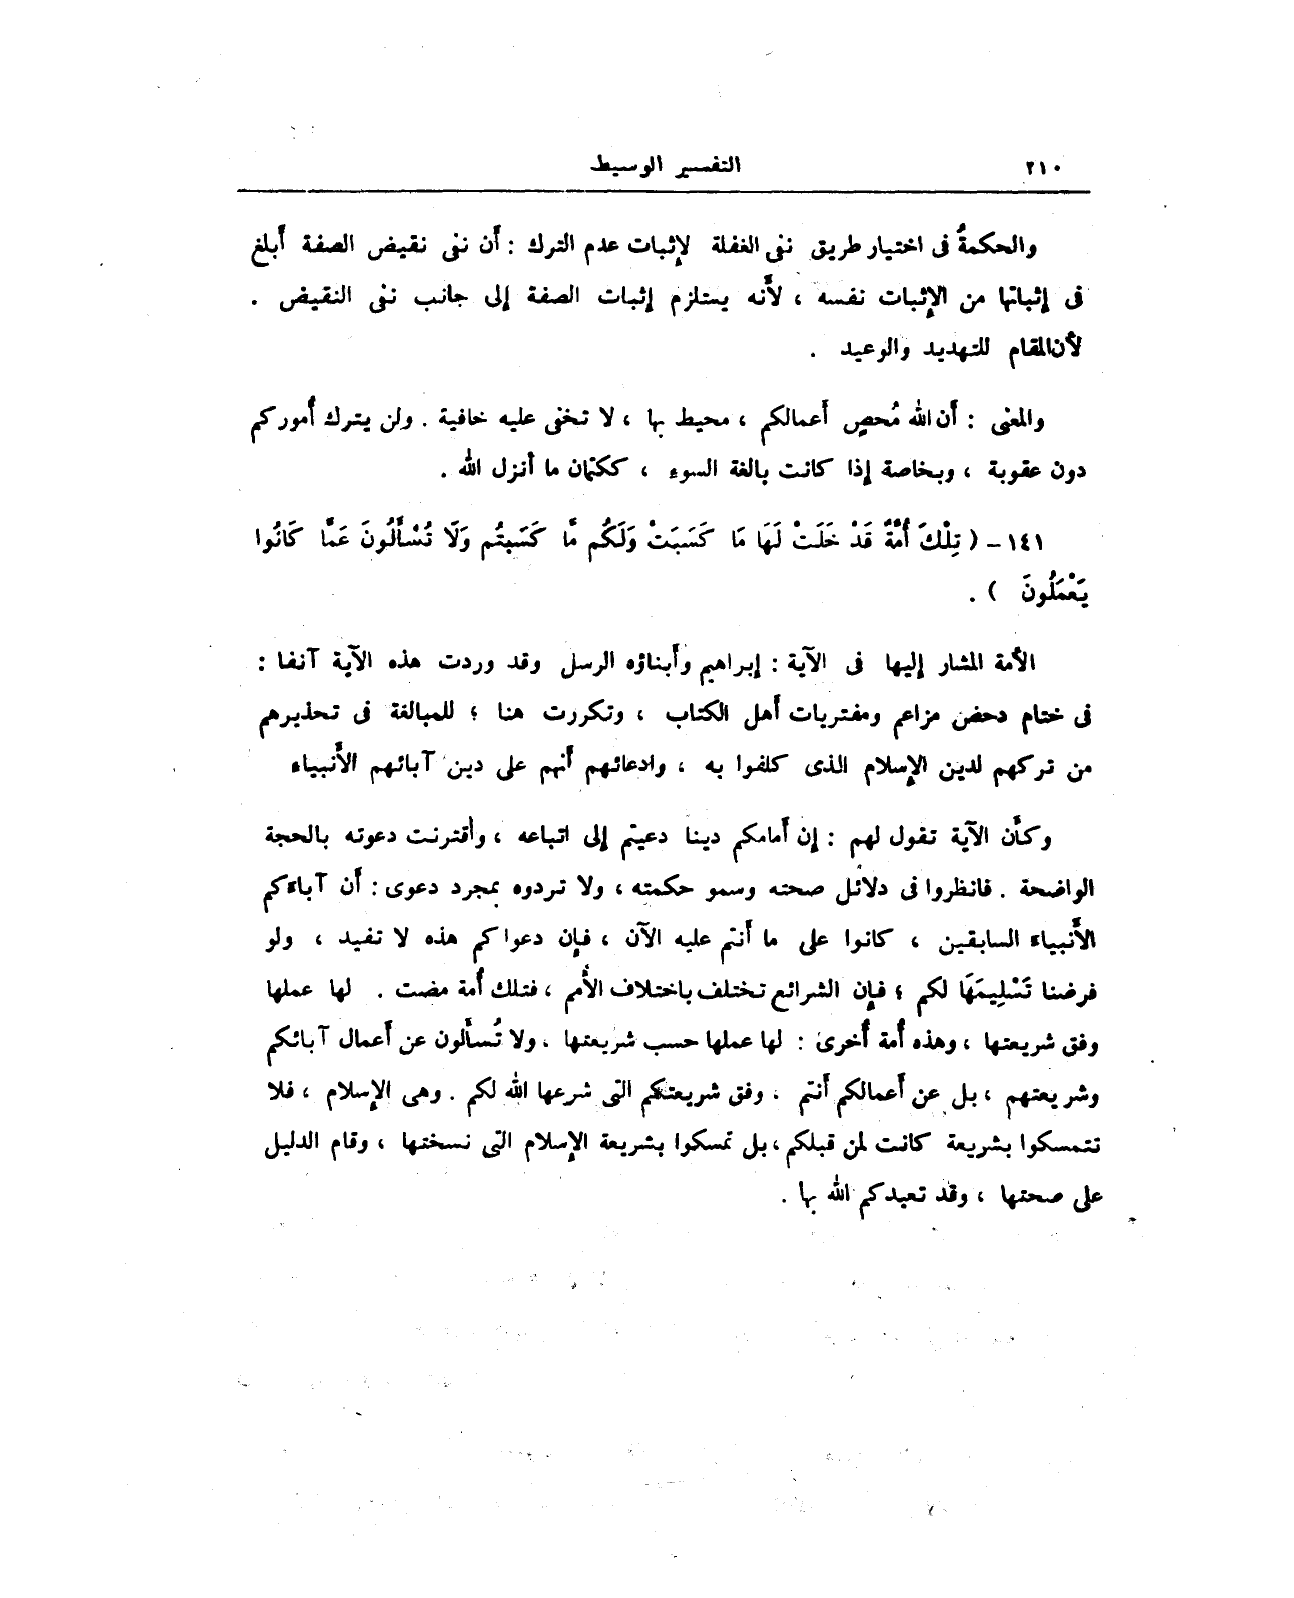 ٢١٠
التفسير الوسيط
والحكمةُ فى اختيار طريق نفى الغفلة لإثبات عدم الترك : أن نفى نقيض الصفة أبلغ
فى إثباتها من الإثبات نفسه ، لأنه يستلزم إثبات الصفة إلى جانب نفى النقيض .
لأن المقام للتهديد والوعيد .
والمعنى : أن الله مُحصٍ أعمالكم ، محيط بها ، لا تخفى عليه خافية . ولن يترك أموركم
دون عقوبة ، وبخاصة إذا كانت بالغة السوء ، ككتمان ما أنزل الله .
١٤١ – ( تِلْكَ أُمَّةٌ قَدْ خَلَتْ لَهَا مَا كَسَبَتْ وَلَكُم مَّا كَسَبتُم وَلَا تُسْأَلُونَ عَمَّا كَانُوا
يَعْمَلُونَ ) .
الأمة المشار إليها فى الآية : إبراهيم وأبناؤه الرسل وقد وردت هذه الآية آنفا :
فى ختام دحض مزاعم ومفتريات أهل الكتاب ، وتكررت هنا ؛ للمبالغة فى تحذيرهم
من تركهم لدين الإسلام الذى كلفوا به ، وادعائهم أنهم على دين آبائهم الأنبياء
وكأن الآية تقول لهم : إن أمامكم دينا دعيتم إلى اتباعه ، وأقترنت دعوته بالحجة
الواضحة . فانظروا فى دلائل صحته وسمو حكمته ، ولا تردوه بمجرد دعوى : أن آباءكم
الأنبياء السابقين ، كانوا على ما أنتم عليه الآن ، فإن دعواكم هذه لا تفيد ، ولو
فرضنا تَسْلِيمَهَا لكم ؛ فإن الشرائع تختلف باختلاف الأمم ، فتلك أمة مضت . لها عملها
وفق شريعتها ، وهذه أمة أُخرى : لها عملها حسب شريعتها ، ولا تُسألون عن أعمال آبائكم
وشريعتهم ، بل عن أعمالكم أنتم ، وفق شريعتكم التى شرعها الله لكم . وهى الإسلام ، فلا
تتمسكوا بشريعة كانت لمن قبلكم ، بل تمسكوا بشريعة الإسلام التى نسختها ، وقام الدليل
على صحتها ، وقد تعبدكم الله بها .